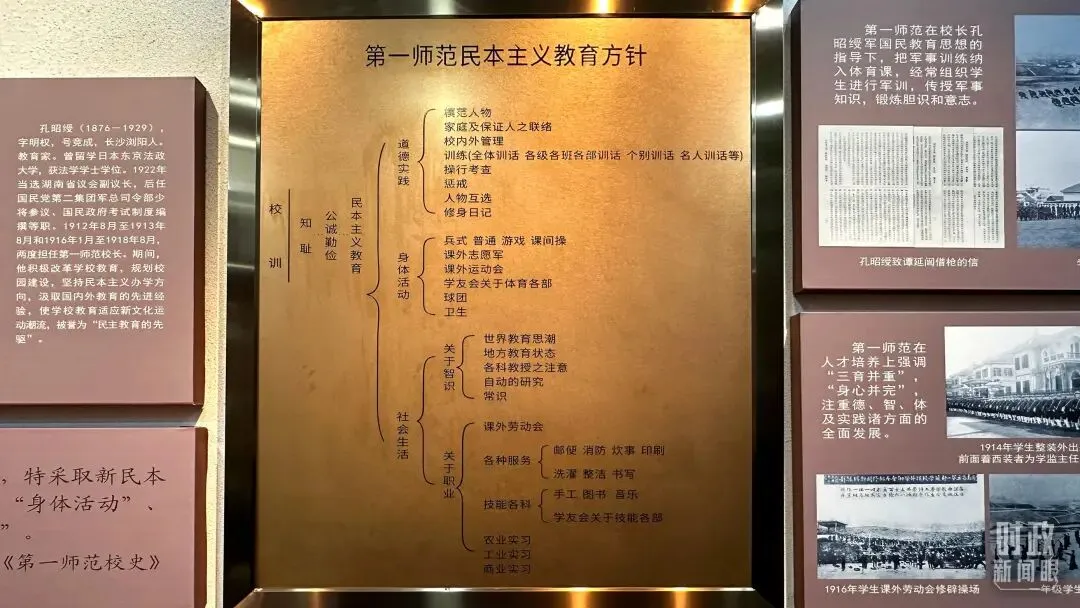 孔昭绶（1876－1929），
字明权，号竞成，长沙浏阳人。
教育家。曾留学日本东京法政
大学，获法学学士学位。1922年
当选湖南省议会副议长，后任
国民党第二集团军总司令部少
将参议、国民政府考试制度编
撰等职。1912年8月至1913年
8月和1916年1月至1918年8月，
两度担任第一师范校长。期间，
他积极改革学校教育，规划校
园建设，坚持民本主义办学方
向，汲取国内外教育的先进经
验，使学校教育适应新文化运
动潮流，被誉为“民主教育的先
驱”。
，特采取新民本
“身体活动”、
”。
《第一师范校史》
第一师范民本主义教育方针
校训
知耻
公诚勤俭
民本主义教育
道德实践
模范人物
家庭及保证人之联络
校内外管理
训练(全体训话 各级各班各部训话 个别训话 名人训话等)
操行考查
惩戒
人物互选
修身日记
身体活动
兵式 普通 游戏 课间操
课外志愿军
课外运动会
学友会关于体育各部
球团
卫生
社会生活
关于智识
世界教育思潮
地方教育状态
各科教授之注意
自动的研究
常识
关于职业
课外劳动会
各种服务
邮便 消防 炊事 印刷
洗濯 整洁 书写
技能各科
手工 图书 音乐
学友会关于技能各部
农业实习
工业实习
商业实习
第一师范在校长孔
昭绶军国民教育思想的
指导下，把军事训练纳
入体育课，经常组织学
生进行军训，传授军事
知识，锻炼胆识和意志。
孔昭绶致谭延闿借枪的信
第一师范在
人才培养上强调
“三育并重”，
“身心并完”，
注重德、智、体
及实践诸方面的
全面发展。
1914年学生整装外出
前面着西装者为学监主任
1916年学生课外劳动会修辟操场
一年级学生
时政
新闻眼